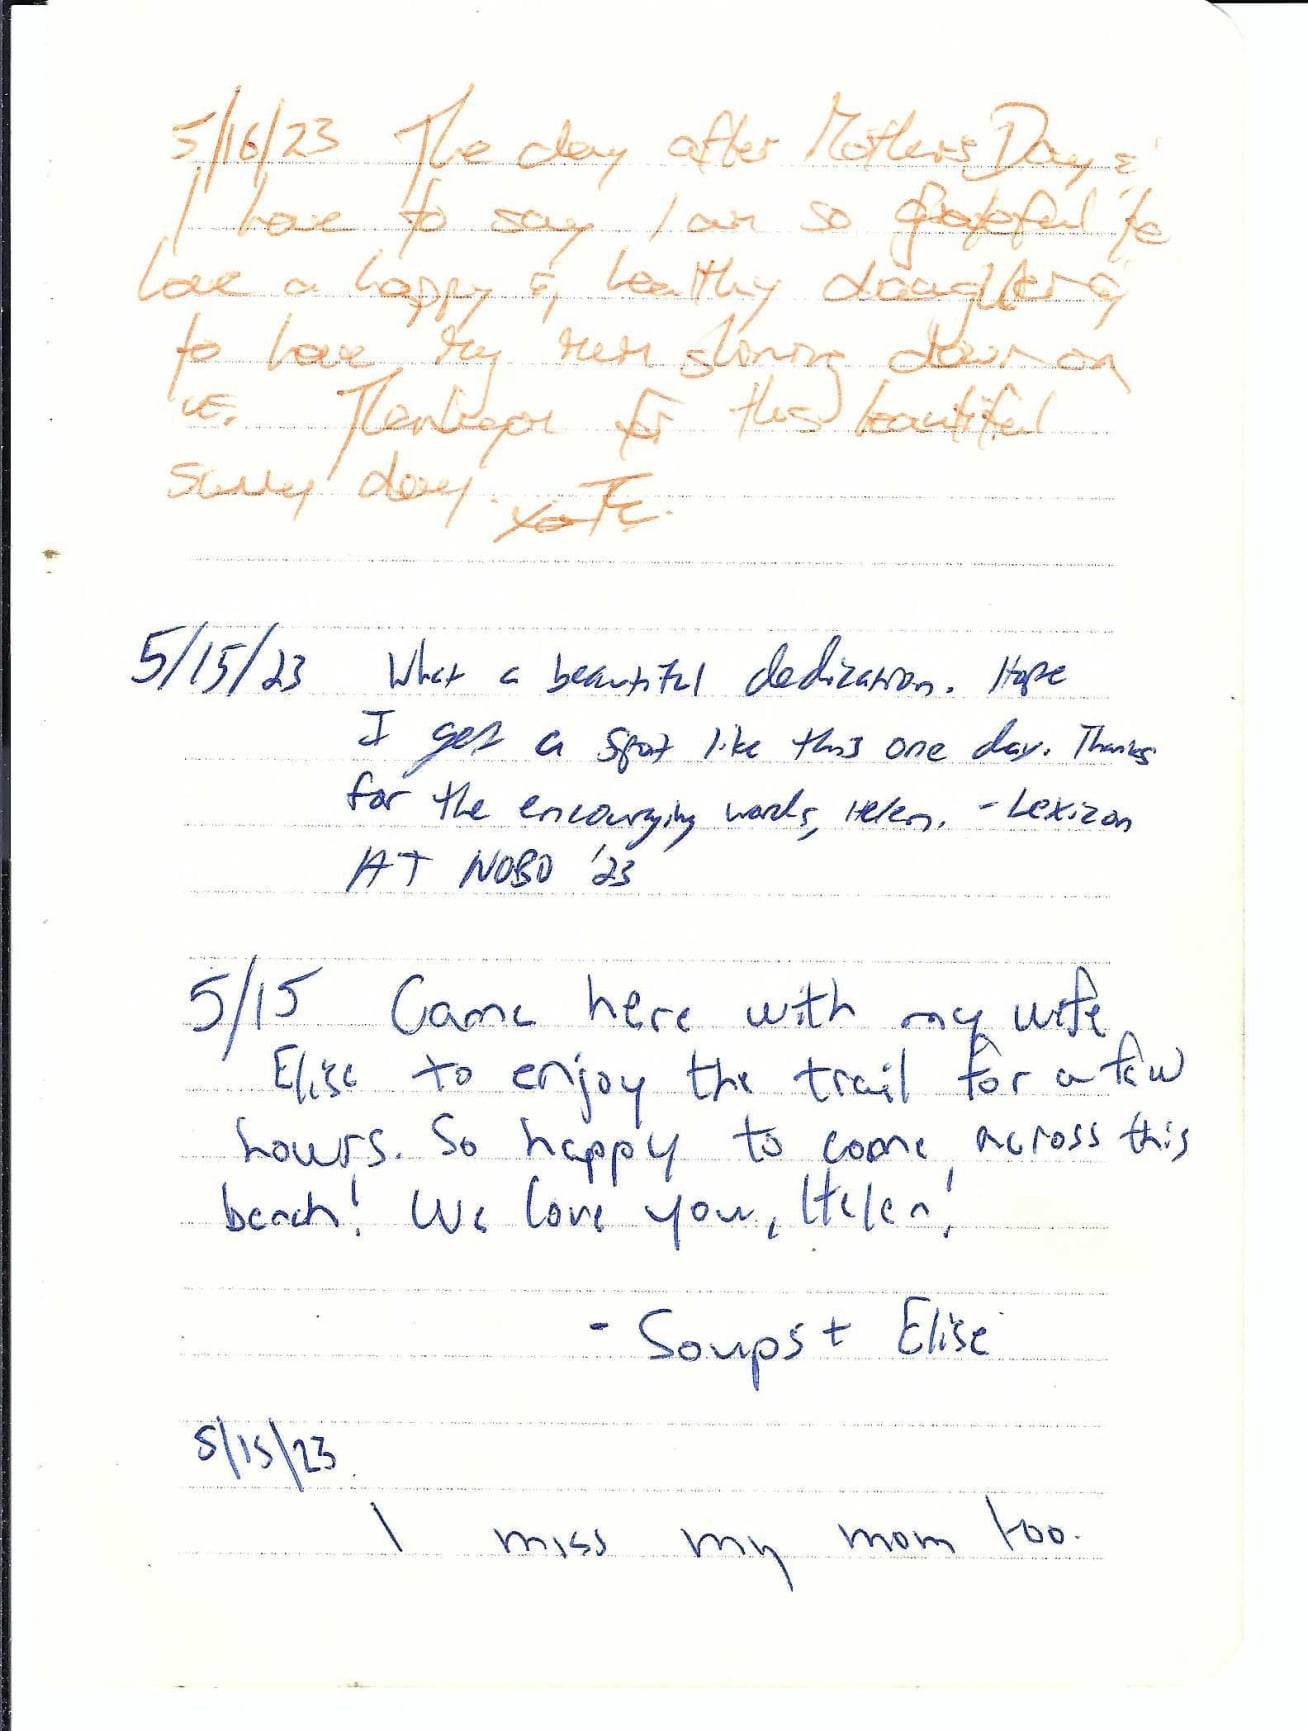 5/16/23 The day after Mothers Day &
I have to say I am so grateful to
have a happy & healthy daughter &
to have my mum shining down on
us. Thankyou for this beautiful
sunny day.
5/15/23 What a beautiful dedication. Hope
I get a spot like this one day. Thanks
for the encouraging words, Helen. - Lexicon
AT NOBO '23
5/15 Came here with my wife
Elise to enjoy the trail for a few
hours. So happy to come across this
bench! We love you, Helen!
- Soups + Elise
5/15/23
I miss my mom too.